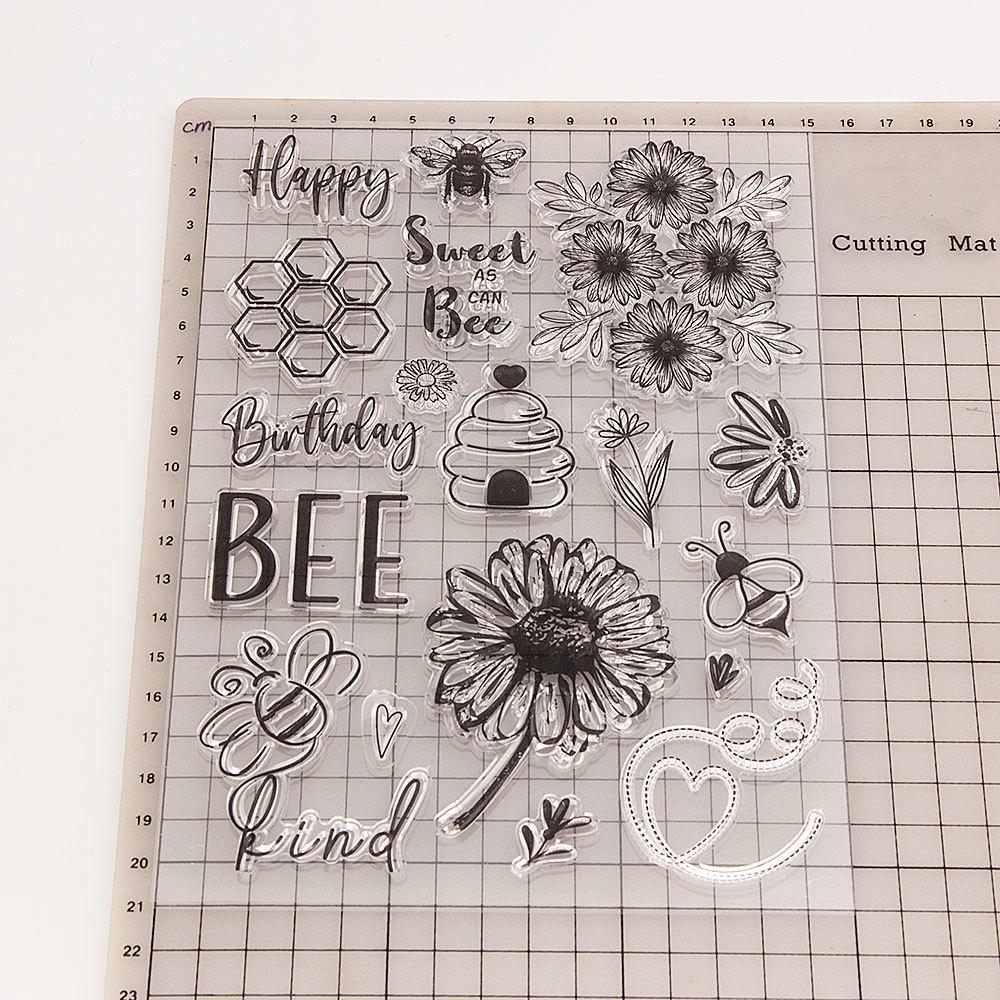 cm 1 2 3 4 5 6 7 8 9 10 11 12 13 14 15 16 17 18 19
1
2
3
4
5
6
7
8
9
10
11
12
13
14
15
16
17
18
19
20
21
22
23
Happy
Sweet
AS
CAN
Bee
Cutting Mat
Birthday
BEE
kind